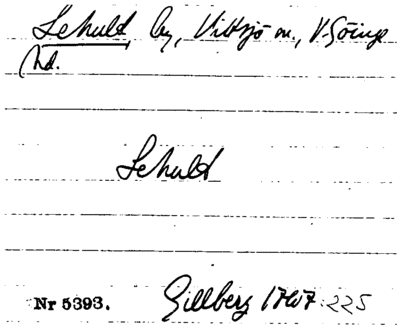 Lehult, by, Vittsjö sn., V. Göinge
hd.
Lehult
Nr 5393. Gillberg 1767 225